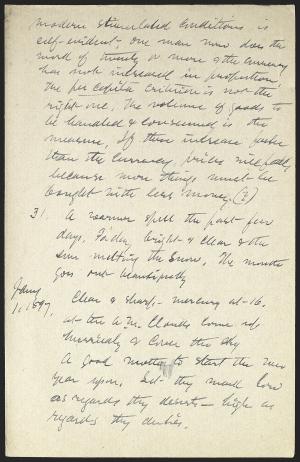 modern stimulated conditions is
self-evident, one man now does the
work of twenty or more & the currency
has not increased in proportion.
The per capita criterion is not the
right one. The volume of goods to
be handled & consumed is the
measure, If these increase faster
than the currency, prices will fall,
because more things must be
bought with less money. (?)
31. A warmer spell the past few
days, Friday, bright & clear & the
sun melting the snow. The month
goes out beautifully
Jany
1, 1897, Clear & sharp - mercury at 16.
at the A.M. Clouds come up
hurriedly & cover the sky
A good motto to start the new
year upon. Set thy mark low
as regards thy deserts - high as
regards thy duties.